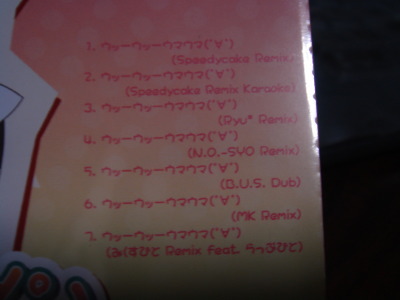 1. ウッーウッーウマウマ(ﾟ∀ﾟ)
(Speedycake Remix)
2. ウッーウッーウマウマ(ﾟ∀ﾟ)
(Speedycake Remix Karaoke)
3. ウッーウッーウマウマ(ﾟ∀ﾟ)
(Ryu* Remix)
4. ウッーウッーウマウマ(ﾟ∀ﾟ)
(N.O.-SYO Remix)
5. ウッーウッーウマウマ(ﾟ∀ﾟ)
(B.U.S. Dub)
6. ウッーウッーウマウマ(ﾟ∀ﾟ)
(MK Remix)
7. ウッーウッーウマウマ(ﾟ∀ﾟ)
Remix feat.